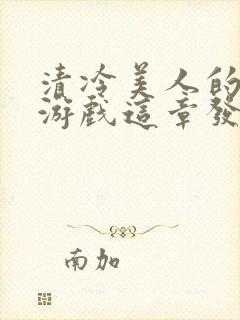 清冷美人的
游戲這章發
南加